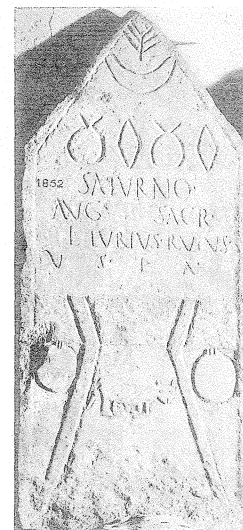 1852
SATVRNO·
AVG· SACR
L IVRIVS·RVFVS·
V · S · L · A ·